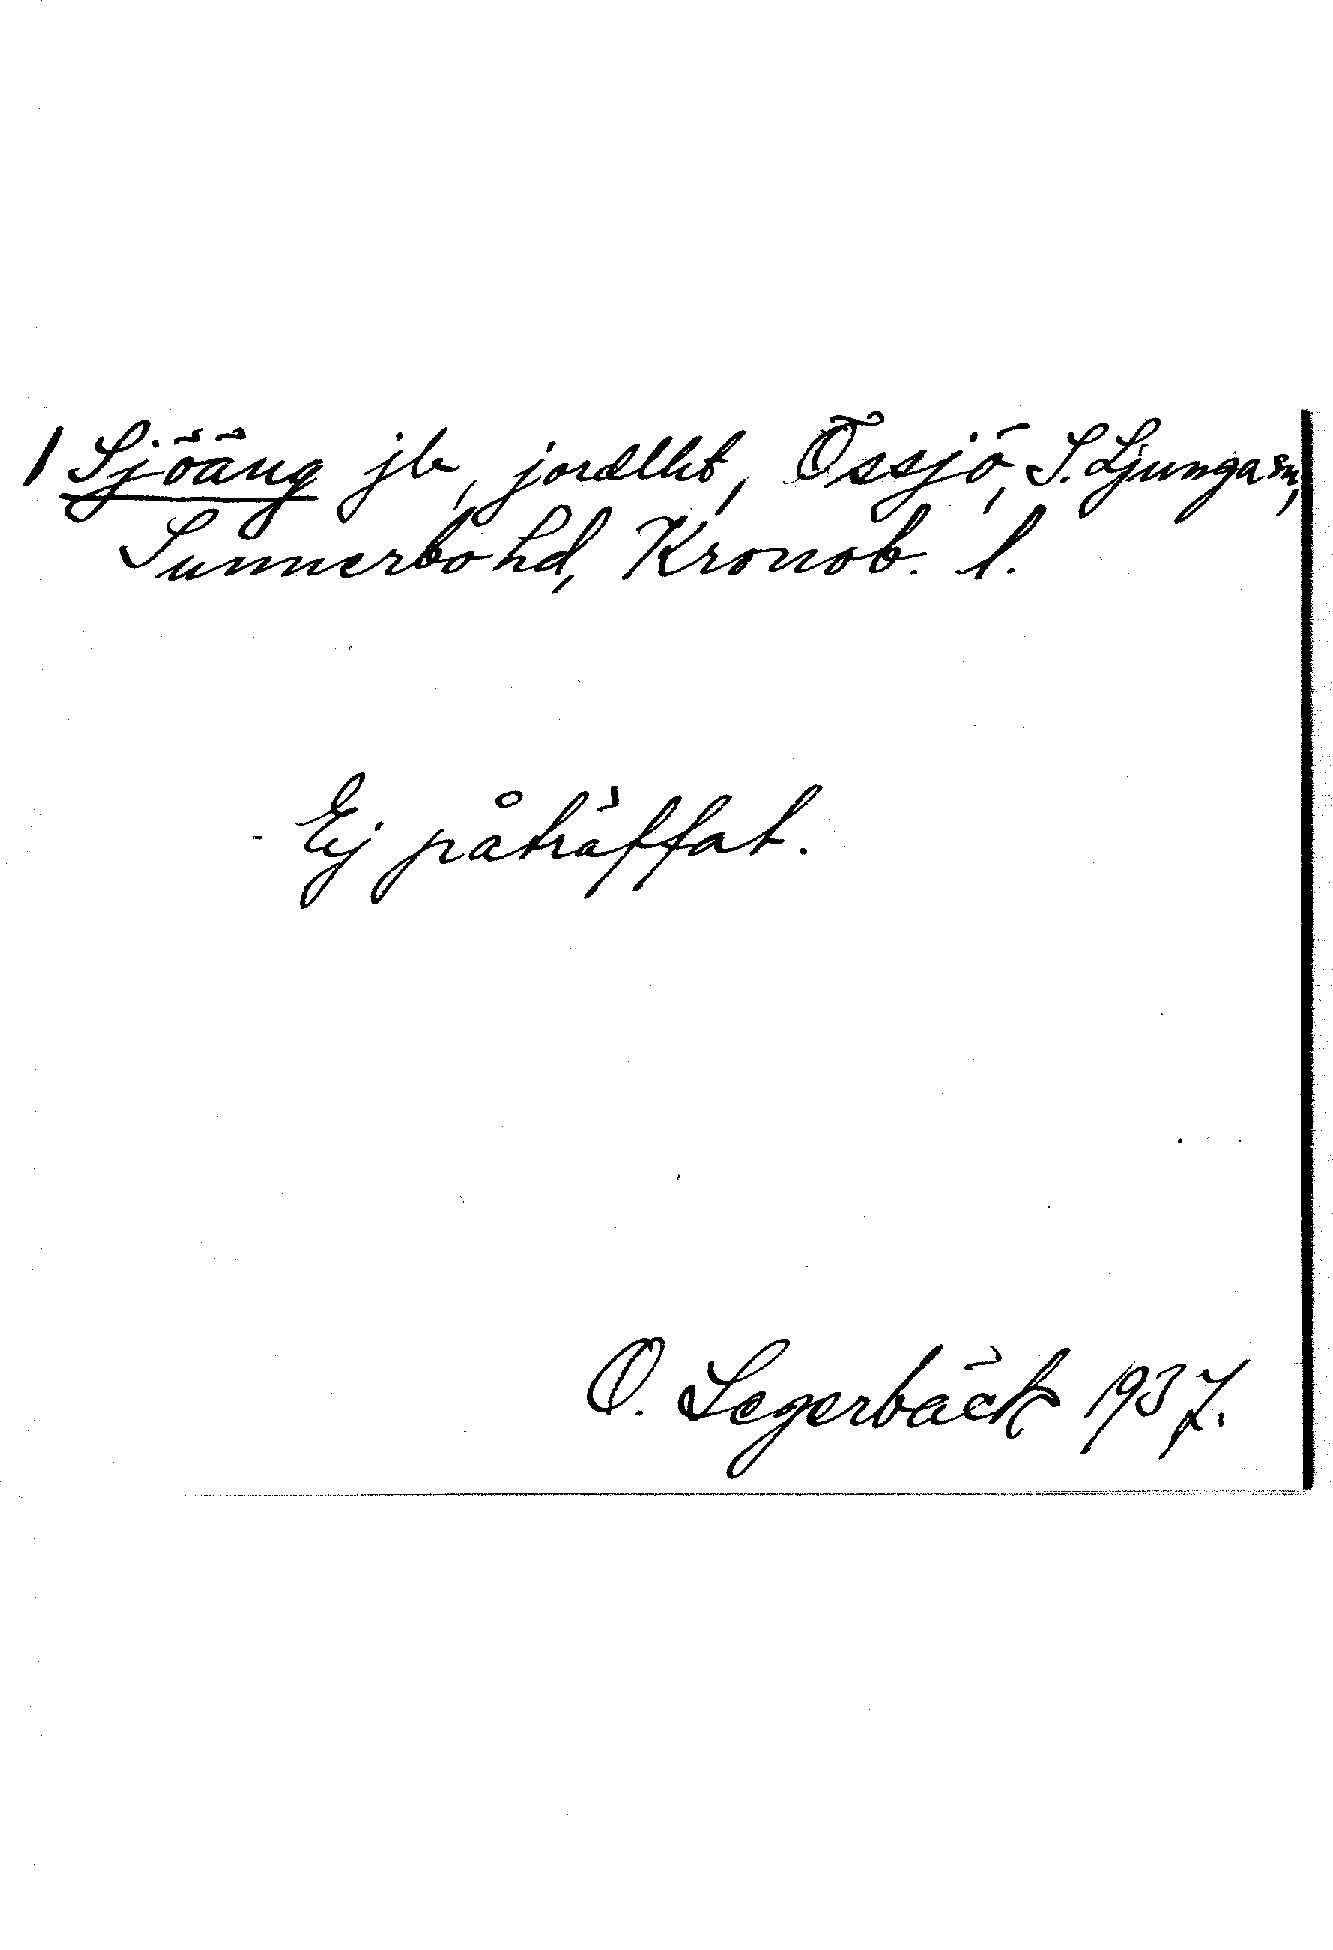 1 Sjöäng jb, jorællt, Össjö, S. Ljunga sn,
Sunnerbo hd, Kronob. l.
Ej påträffat.
O. Segerbäck 1937.